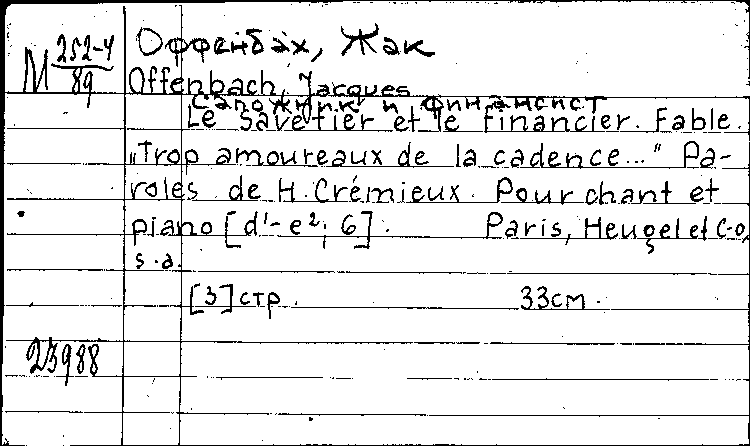 М 252-4/89
Оффенбах, Жак
Offenbach, Jacques
Сапожник и финансист
Le savetier et le financier. Fable.
„Trop amoureaux de la cadence..." Pa-
roles de H. Crémieux. Pour chant et
piano [d¹-e²; G]. Paris, Heugel et C-o,
s.a.
[3] стр. 33см.
23988